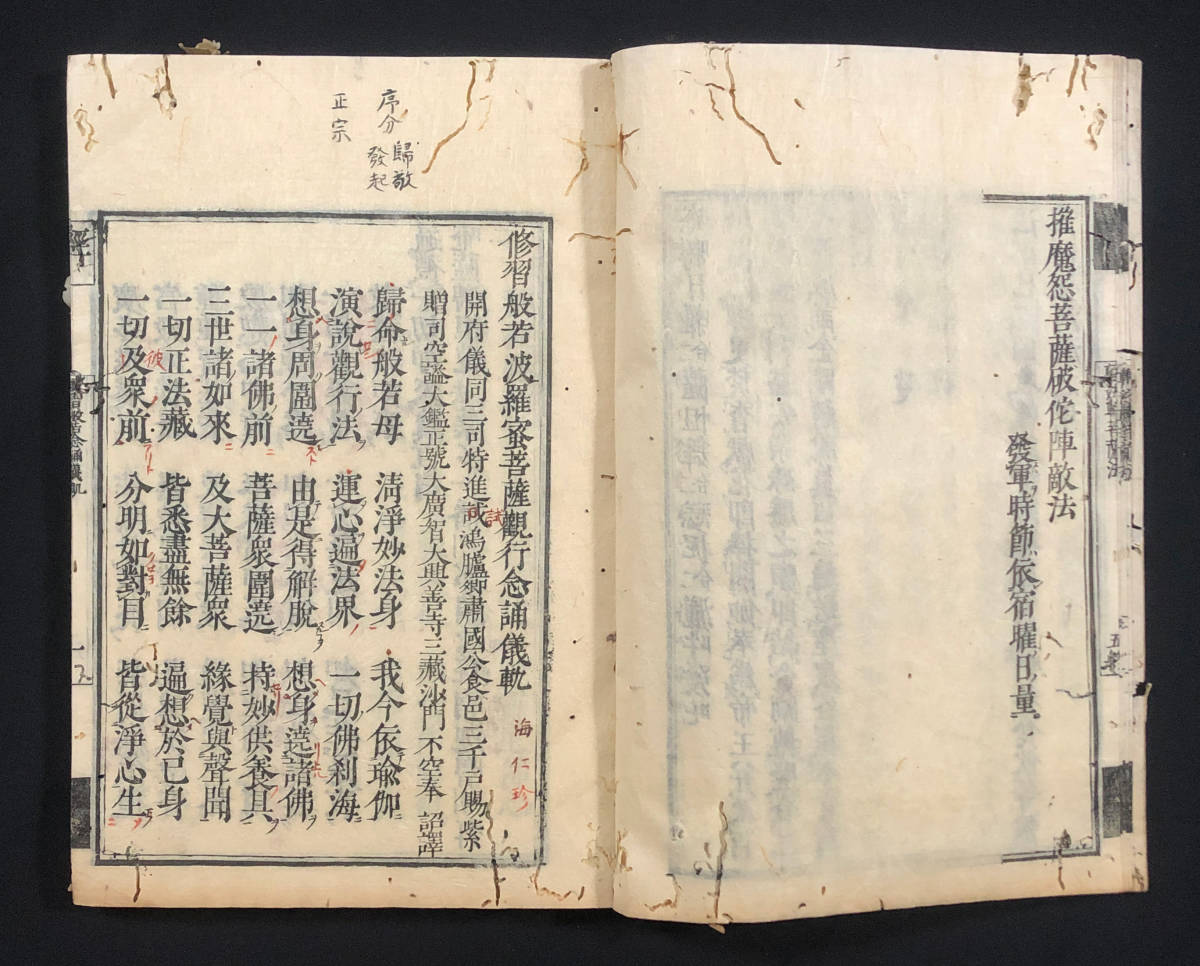 摧魔怨菩薩破佗陣敵法
發軍時節依宿曜日量
五
序分 歸敬
發起
正宗
修習般若波羅蜜菩薩觀行念誦儀軌
海仁珍
開府儀同三司特進試鴻臚卿肅國公食邑三千戶賜紫
試
贈司空謚大鑑正號大廣智大興善寺三藏沙門不空奉 詔譯
歸命般若母 清淨妙法身 我今依瑜伽
演說觀行法 運心遍法界 一切佛剎海
想身周圍遶 由是得解脫 想身遶諸佛
一一諸佛前 菩薩衆圍遶 持妙供養具
三世諸如來 及大菩薩衆 緣覺與聲聞
一切正法藏 皆悉盡無餘 遍想於己身
彼
一切及衆前 分明如對目 皆從淨心生